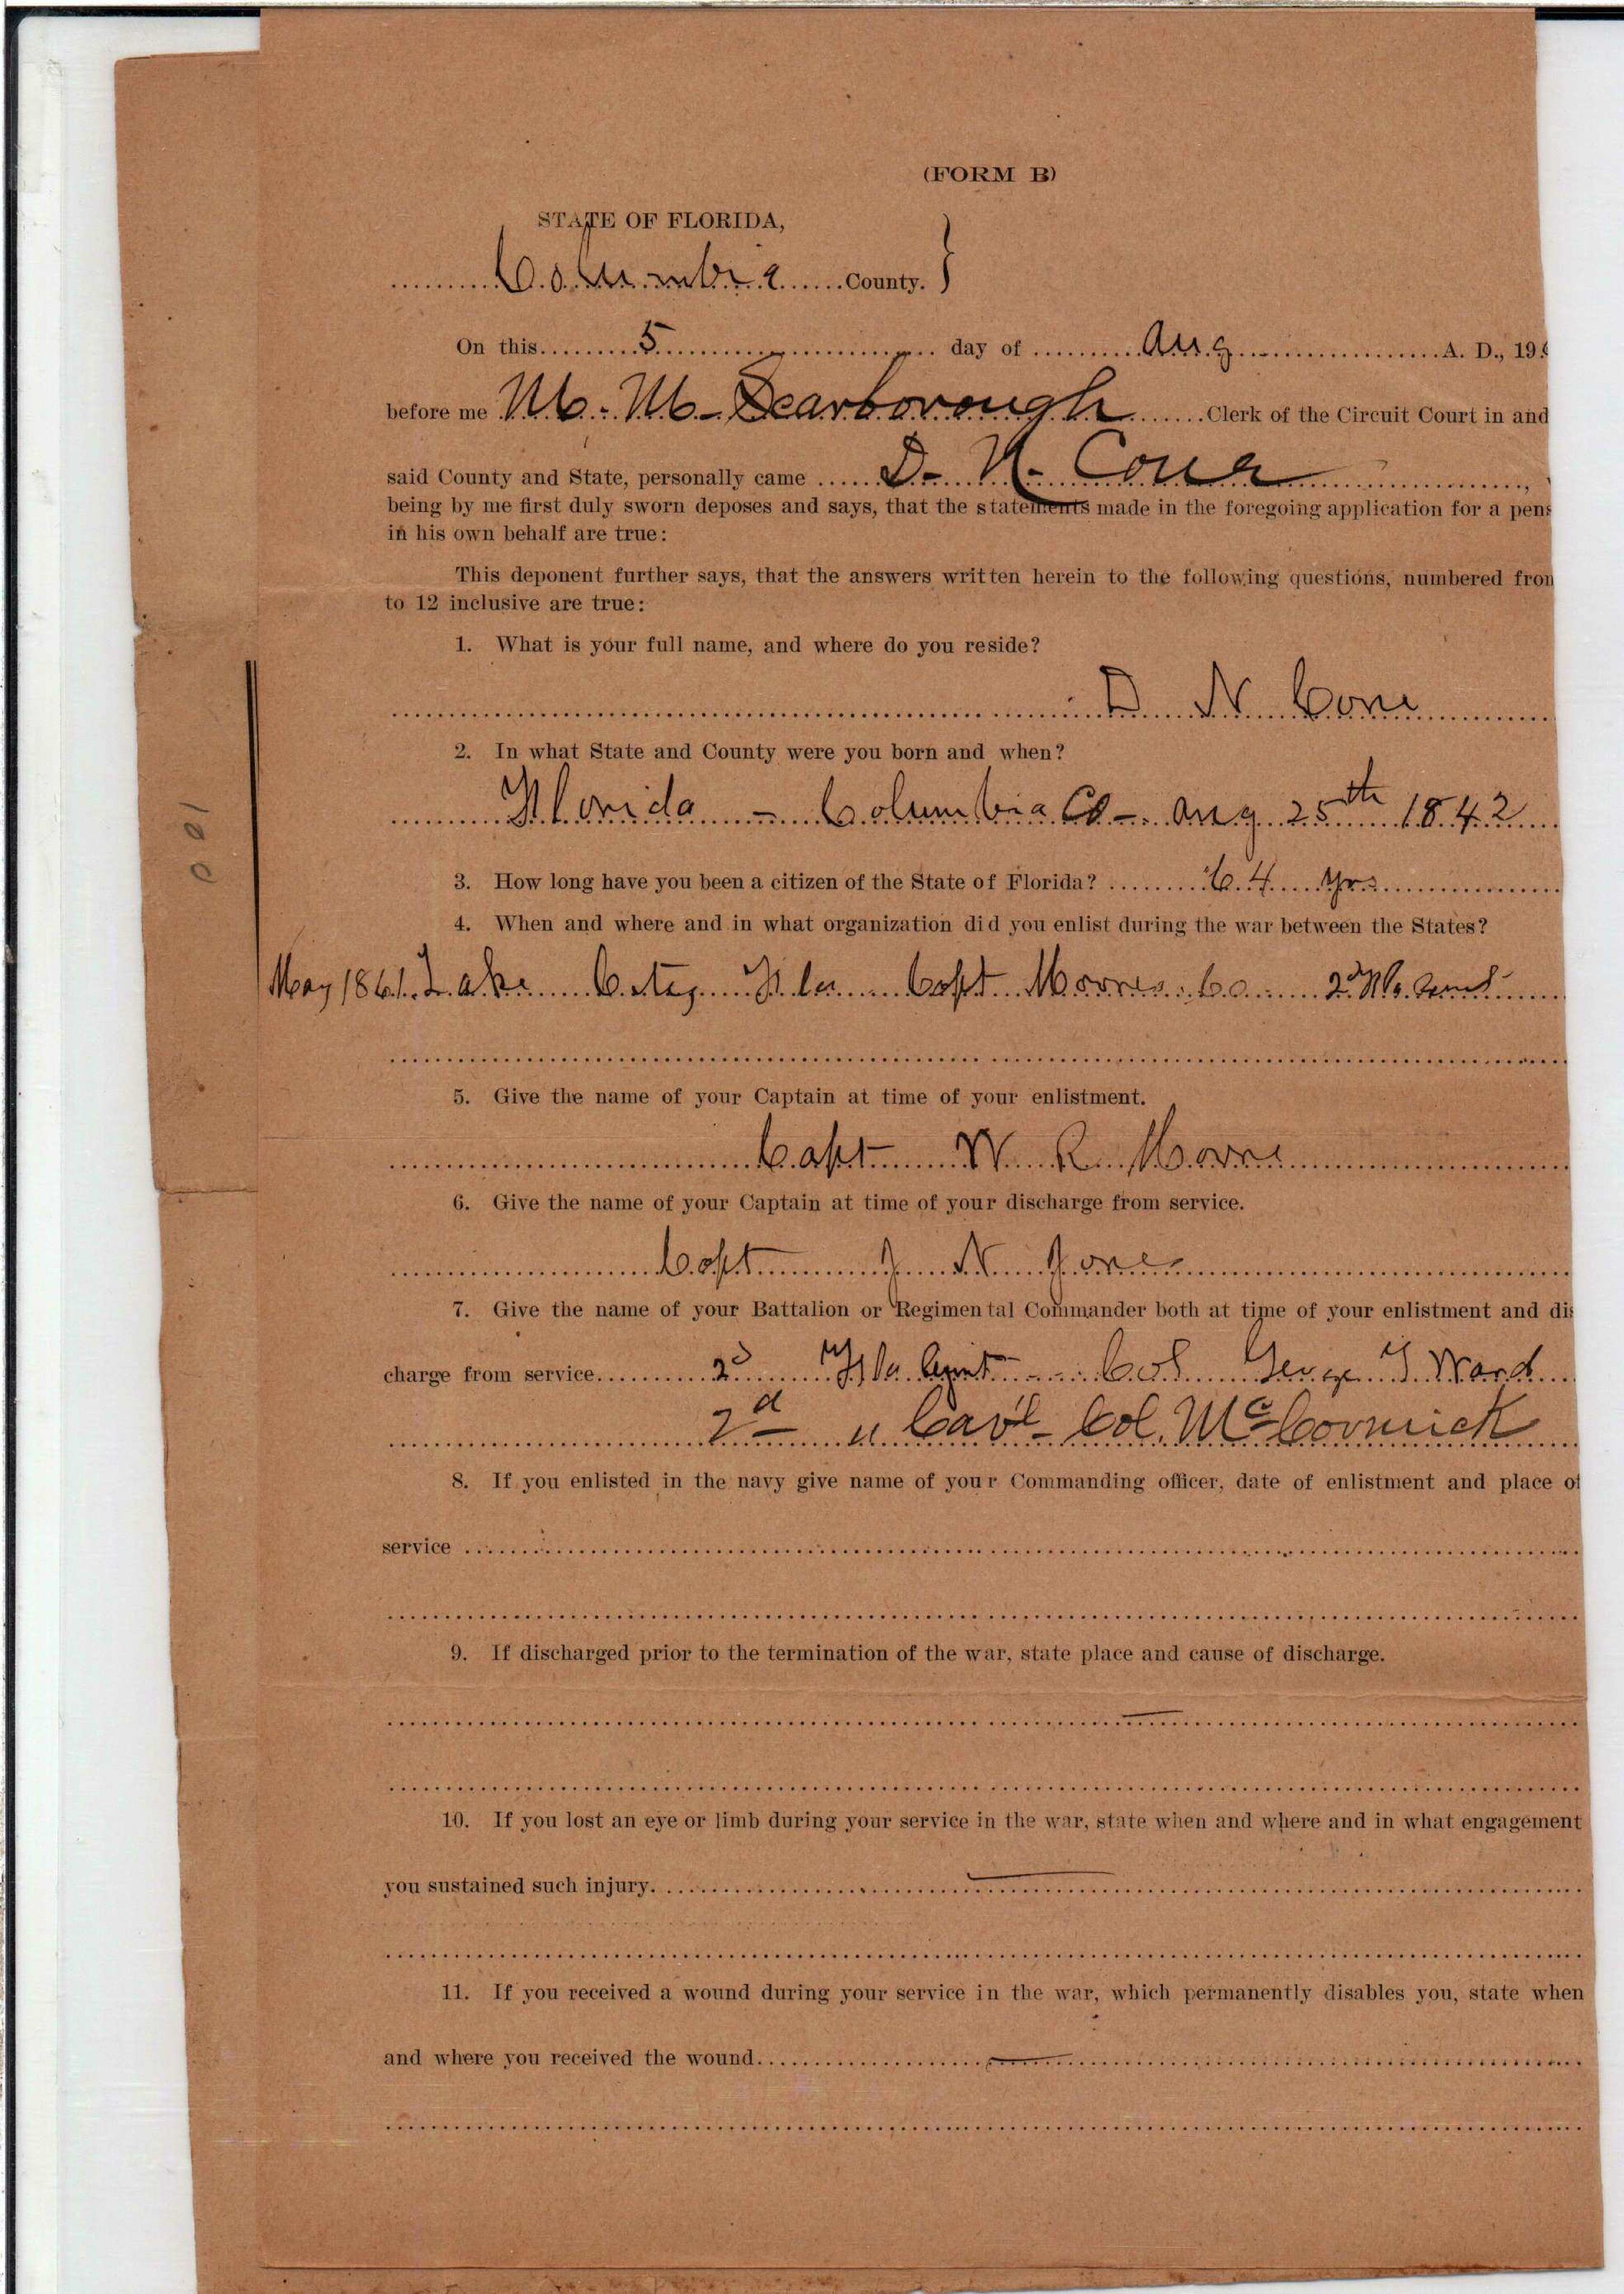 (FORM B)
STATE OF FLORIDA,
Columbia County. }
On this 5 day of Aug A. D., 19
before me M. M. Scarborough Clerk of the Circuit Court in and
said County and State, personally came D. N. Cone,
being by me first duly sworn deposes and says, that the statements made in the foregoing application for a pens
in his own behalf are true:
This deponent further says, that the answers written herein to the following questions, numbered from
to 12 inclusive are true:
1. What is your full name, and where do you reside?
D N Cone
2. In what State and County were you born and when?
Florida - Columbia Co - Aug 25th 1842
3. How long have you been a citizen of the State of Florida? 64 Yrs
4. When and where and in what organization did you enlist during the war between the States?
May 1861. Lake City Fla Capt Moores Co 2d Fla
5. Give the name of your Captain at time of your enlistment.
Capt W R Moore
6. Give the name of your Captain at time of your discharge from service.
Capt N Jones
7. Give the name of your Battalion or Regimental Commander both at time of your enlistment and dis
charge from service 2d Fla Col George T Ward
2d " Cavl - Col. McCormick
8. If you enlisted in the navy give name of your Commanding officer, date of enlistment and place of
service
9. If discharged prior to the termination of the war, state place and cause of discharge.
10. If you lost an eye or limb during your service in the war, state when and where and in what engagement
you sustained such injury.
11. If you received a wound during your service in the war, which permanently disables you, state when
and where you received the wound.